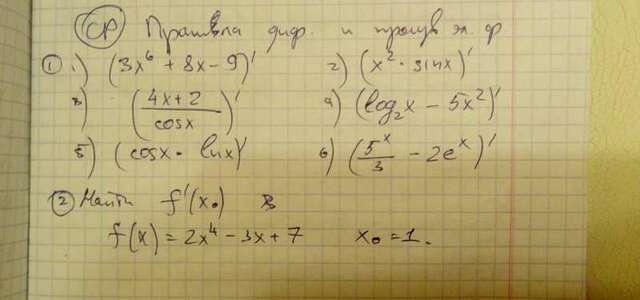 СР Правила диф. и произв эл. ф
① 1) (3x⁶ + 8x - 9)' 2) (x² · sinx)'
3) ((4x+2)/cosx)' 4) (log₂x - 5x²)'
5) (cosx · lnx)' 6) (5ˣ/3 - 2eˣ)'
② Найти f'(x₀)
f(x) = 2x⁴ - 3x + 7 x₀ = 1.